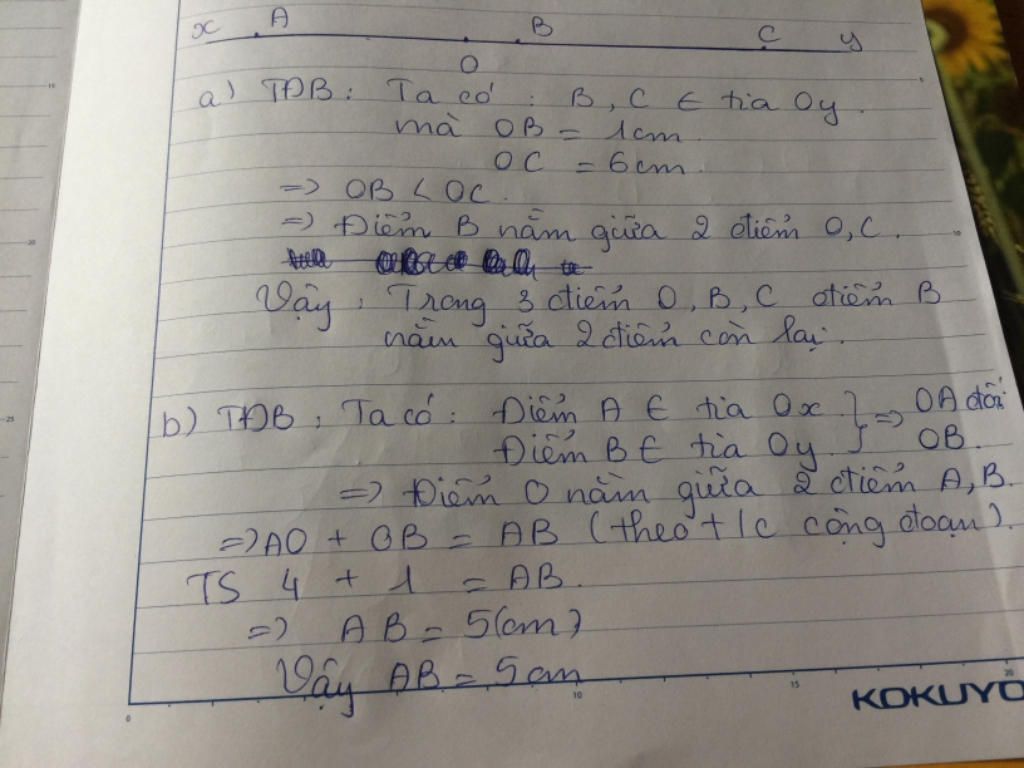 x A B C y
O
a) TĐB : Ta có : B, C ∈ tia Oy.
mà OB = 1cm
OC = 6cm.
=> OB < OC.
=> Điểm B nằm giữa 2 điểm O, C.
Vậy : Trong 3 điểm O, B, C điểm B
nằm giữa 2 điểm còn lại.
b) TĐB : Ta có : Điểm A ∈ tia Ox } => OA đối
Điểm B ∈ tia Oy OB.
=> Điểm O nằm giữa 2 điểm A, B.
=> AO + OB = AB (theo t/c cộng đoạn).
TS 4 + 1 = AB.
=> AB = 5(cm)
Vậy AB = 5cm
0 10 15 20
KOKUYO